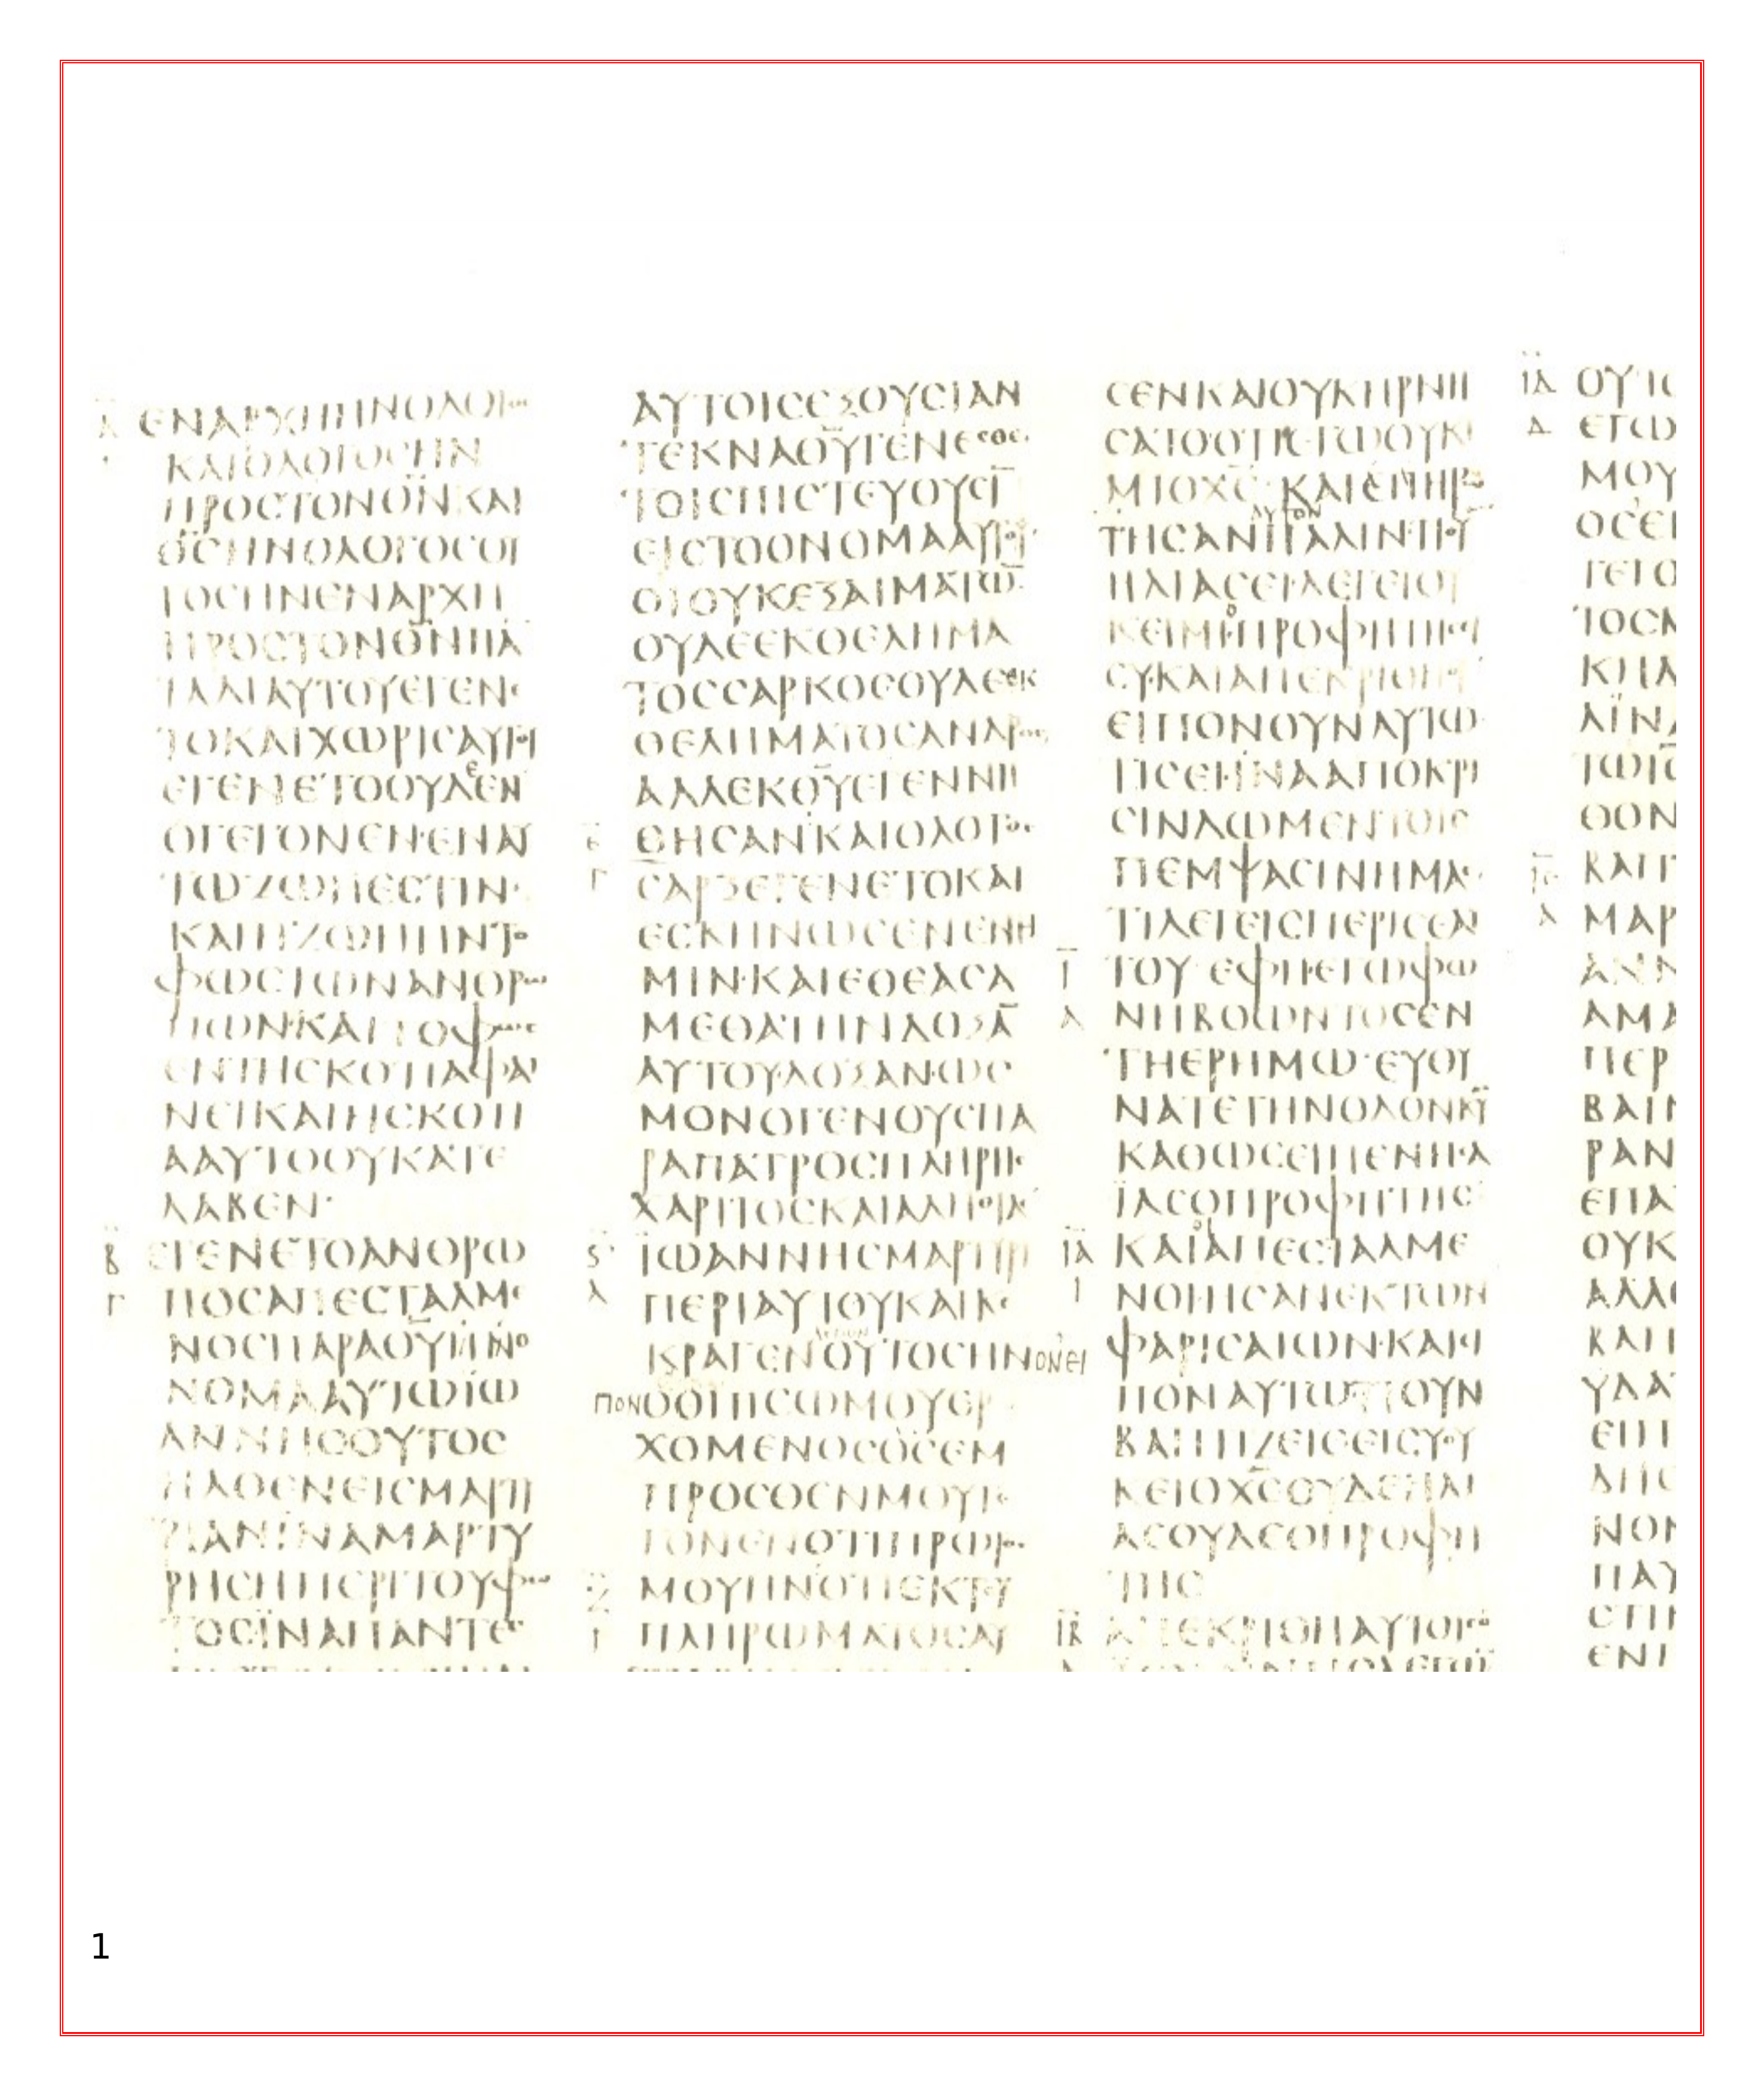 ΕΝΑΡΧΗΗΝΟΛΟΓΟϹ
ΚΑΙΟΛΟΓΟϹΗΝ
ΠΡΟϹΤΟΝΘ̅Ν̅ΚΑΙ
Θ̅Ϲ̅ΗΝΟΛΟΓΟϹΟΥ
ΤΟϹΗΝΕΝΑΡΧΗ
ΠΡΟϹΤΟΝΘ̅Ν̅ΠΑ
ΤΑΔΙΑΥΤΟΥΕΓΕΝΕ
ΤΟΚΑΙΧΩΡΙϹΑΥΤΟΥ
ΕΓΕΝΕΤΟΟΥΔΕΕΝ
ΟΓΕΓΟΝΕΝ·ΕΝΑΥ
ΤΩΖΩΗΕϹΤΙΝ·
ΚΑΙΗΖΩΗΗΝΤΟ
ΦΩϹΤΩΝΑΝΘΡΩ
ΠΩΝ·ΚΑΙΤΟΦΩϹ
ΕΝΤΗϹΚΟΤΙΑΦΑΙ
ΝΕΙΚΑΙΗϹΚΟΤΙ
ΑΑΥΤΟΟΥΚΑΤΕ
ΛΑΒΕΝ·
Β ΕΓΕΝΕΤΟΑΝΘΡΩ
Γ ΠΟϹΑΠΕϹΤΑΛΜΕ
ΝΟϹΠΑΡΑΘ̅Υ̅ΗΝΟ
ΝΟΜΑΑΥΤΩΪΩ
ΑΝΝΗϹΟΥΤΟϹ
ΗΛΘΕΝΕΙϹΜΑΡΤΥ
ΡΙΑΝΪΝΑΜΑΡΤΥ
ΡΗϹΗΠΕΡΙΤΟΥΦΩ
ΤΟϹΪΝΑΠΑΝΤΕϹ
ΑΥΤΟΙϹΕΞΟΥϹΙΑΝ
ΤΕΚΝΑΘ̅Υ̅ΓΕΝΕϹΘΕ
ΤΟΙϹΠΙϹΤΕΥΟΥϹΙ̅
ΕΙϹΤΟΟΝΟΜΑΑΥΤΟΥ
ΟΙΟΥΚΕΞΑΙΜΑΤΩ̅
ΟΥΔΕΕΚΘΕΛΗΜΑ
ΤΟϹϹΑΡΚΟϹΟΥΔΕΕΚ
ΘΕΛΗΜΑΤΟϹΑΝΔΡΟϹ
ΑΛΛΕΚΘ̅Υ̅ΕΓΕΝΝΗ
Ε ΘΗϹΑΝ·ΚΑΙΟΛΟΓΟϹ
Γ ϹΑΡΞΕΓΕΝΕΤΟΚΑΙ
ΕϹΚΗΝΩϹΕΝΕΝΗ
ΜΙΝ·ΚΑΙΕΘΕΑϹΑ
ΜΕΘΑΤΗΝΔΟΞΑ̅
ΑΥΤΟΥΔΟΞΑΝ·ΩϹ
ΜΟΝΟΓΕΝΟΥϹΠΑ
ΡΑΠΑΤΡΟϹΠΛΗΡΗϹ
ΧΑΡΙΤΟϹΚΑΙΑΛΗΘΙΑϹ
Ϛ ΪΩΑΝΝΗϹΜΑΡΤΥΡΙ
Α ΠΕΡΙΑΥΤΟΥΚΑΙΚΕ
ΚΡΑΓΕΝΟΥΤΟϹΗΝΟΝΕΙ
ΠΟΝΟΟΠΙϹΩΜΟΥΕΡ
ΧΟΜΕΝΟϹΟϹΕΜ
ΠΡΟϹΘΕΝΜΟΥΓΕ
ΓΟΝΕΝΟΤΙΠΡΩΤΟϹ
ΜΟΥΗΝΟΤΙΕΚΤΟΥ
ΠΛΗΡΩΜΑΤΟϹΑΥ
ϹΕΝΚΑΙΟΥΚΗΡΝΗ
ϹΑΤΟΟΤΙΕΓΩΟΥΚΙ
ΜΙΟΧ̅Ϲ̅·ΚΑΙΕΠΗΡΩ
ΑΥΤΟΝ
ΤΗϹΑΝΠΑΛΙΝ·ΤΙΟΥ
ΗΛΙΑϹΕΙ·ΛΕΓΕΙΟΥ
ΚΕΙΜΙ·ΟΠΡΟΦΗΤΗϹΕΙ
ϹΥ·ΚΑΙΑΠΕΚΡΙΘΗΟΥ
ΕΙΠΟΝΟΥΝΑΥΤΩ·
ΤΙϹΕΙ·ΪΝΑΑΠΟΚΡΙ
ϹΙΝΔΩΜΕΝΤΟΙϹ
ΠΕΜΨΑϹΙΝΗΜΑϹ
ΤΙΛΕΓΕΙϹΠΕΡΙϹΕΑΥ
Ι̅ ΤΟΥ·ΕΦΗ·ΕΓΩΦΩ
Α ΝΗΒΟΩΝΤΟϹΕΝ
ΤΗΕΡΗΜΩ·ΕΥΘΥ
ΝΑΤΕΤΗΝΟΔΟΝΚ̅Υ̅
ΚΑΘΩϹΕΙΠΕΝΗϹΑ
ΪΑϹΟΠΡΟΦΗΤΗϹ
ΙΑ ΚΑΙΟΙΑΠΕϹΤΑΛΜΕ
Ι ΝΟΙΗϹΑΝΕΚΤΩΝ
ΦΑΡΙϹΑΙΩΝ·ΚΑΙΕΙ
ΠΟΝΑΥΤΩΤΙΟΥΝ
ΒΑΠΤΙΖΕΙϹΕΙϹΥΟΥ
ΚΕΙΟΧ̅Ϲ̅ΟΥΔΕΗΛΙ
ΑϹΟΥΔΕΟΠΡΟΦΗ
ΤΗϹ
ΙΒ ΑΠΕΚΡΙΘΗΑΥΤΟΙϹΟ
ΙΔ ΟΥΤΟ
Δ ΕΓΩ
ΜΟΥ
ΟϹΕΙ
ΓΕΓΟ
ΤΟϹΚ
ΚΗΛ
ΛΪΝΑ
ΤΩΙϹ
ΘΟΝ
ΙΕ ΒΑΠΤ
Α ΜΑΡ
ΑΝΝ
ΑΜΑ
ΠΕΡ
ΒΑΙΝ
ΡΑΝ
ΕΠΑ
ΟΥΚ
ΑΛΛΟ
ΒΑΠ
ΥΔΑ
ΕΠΙ
ΔΗϹ
ΝΟΝ
ΠΑΥ
ϹΤΙΝ
ΕΝΙ
1